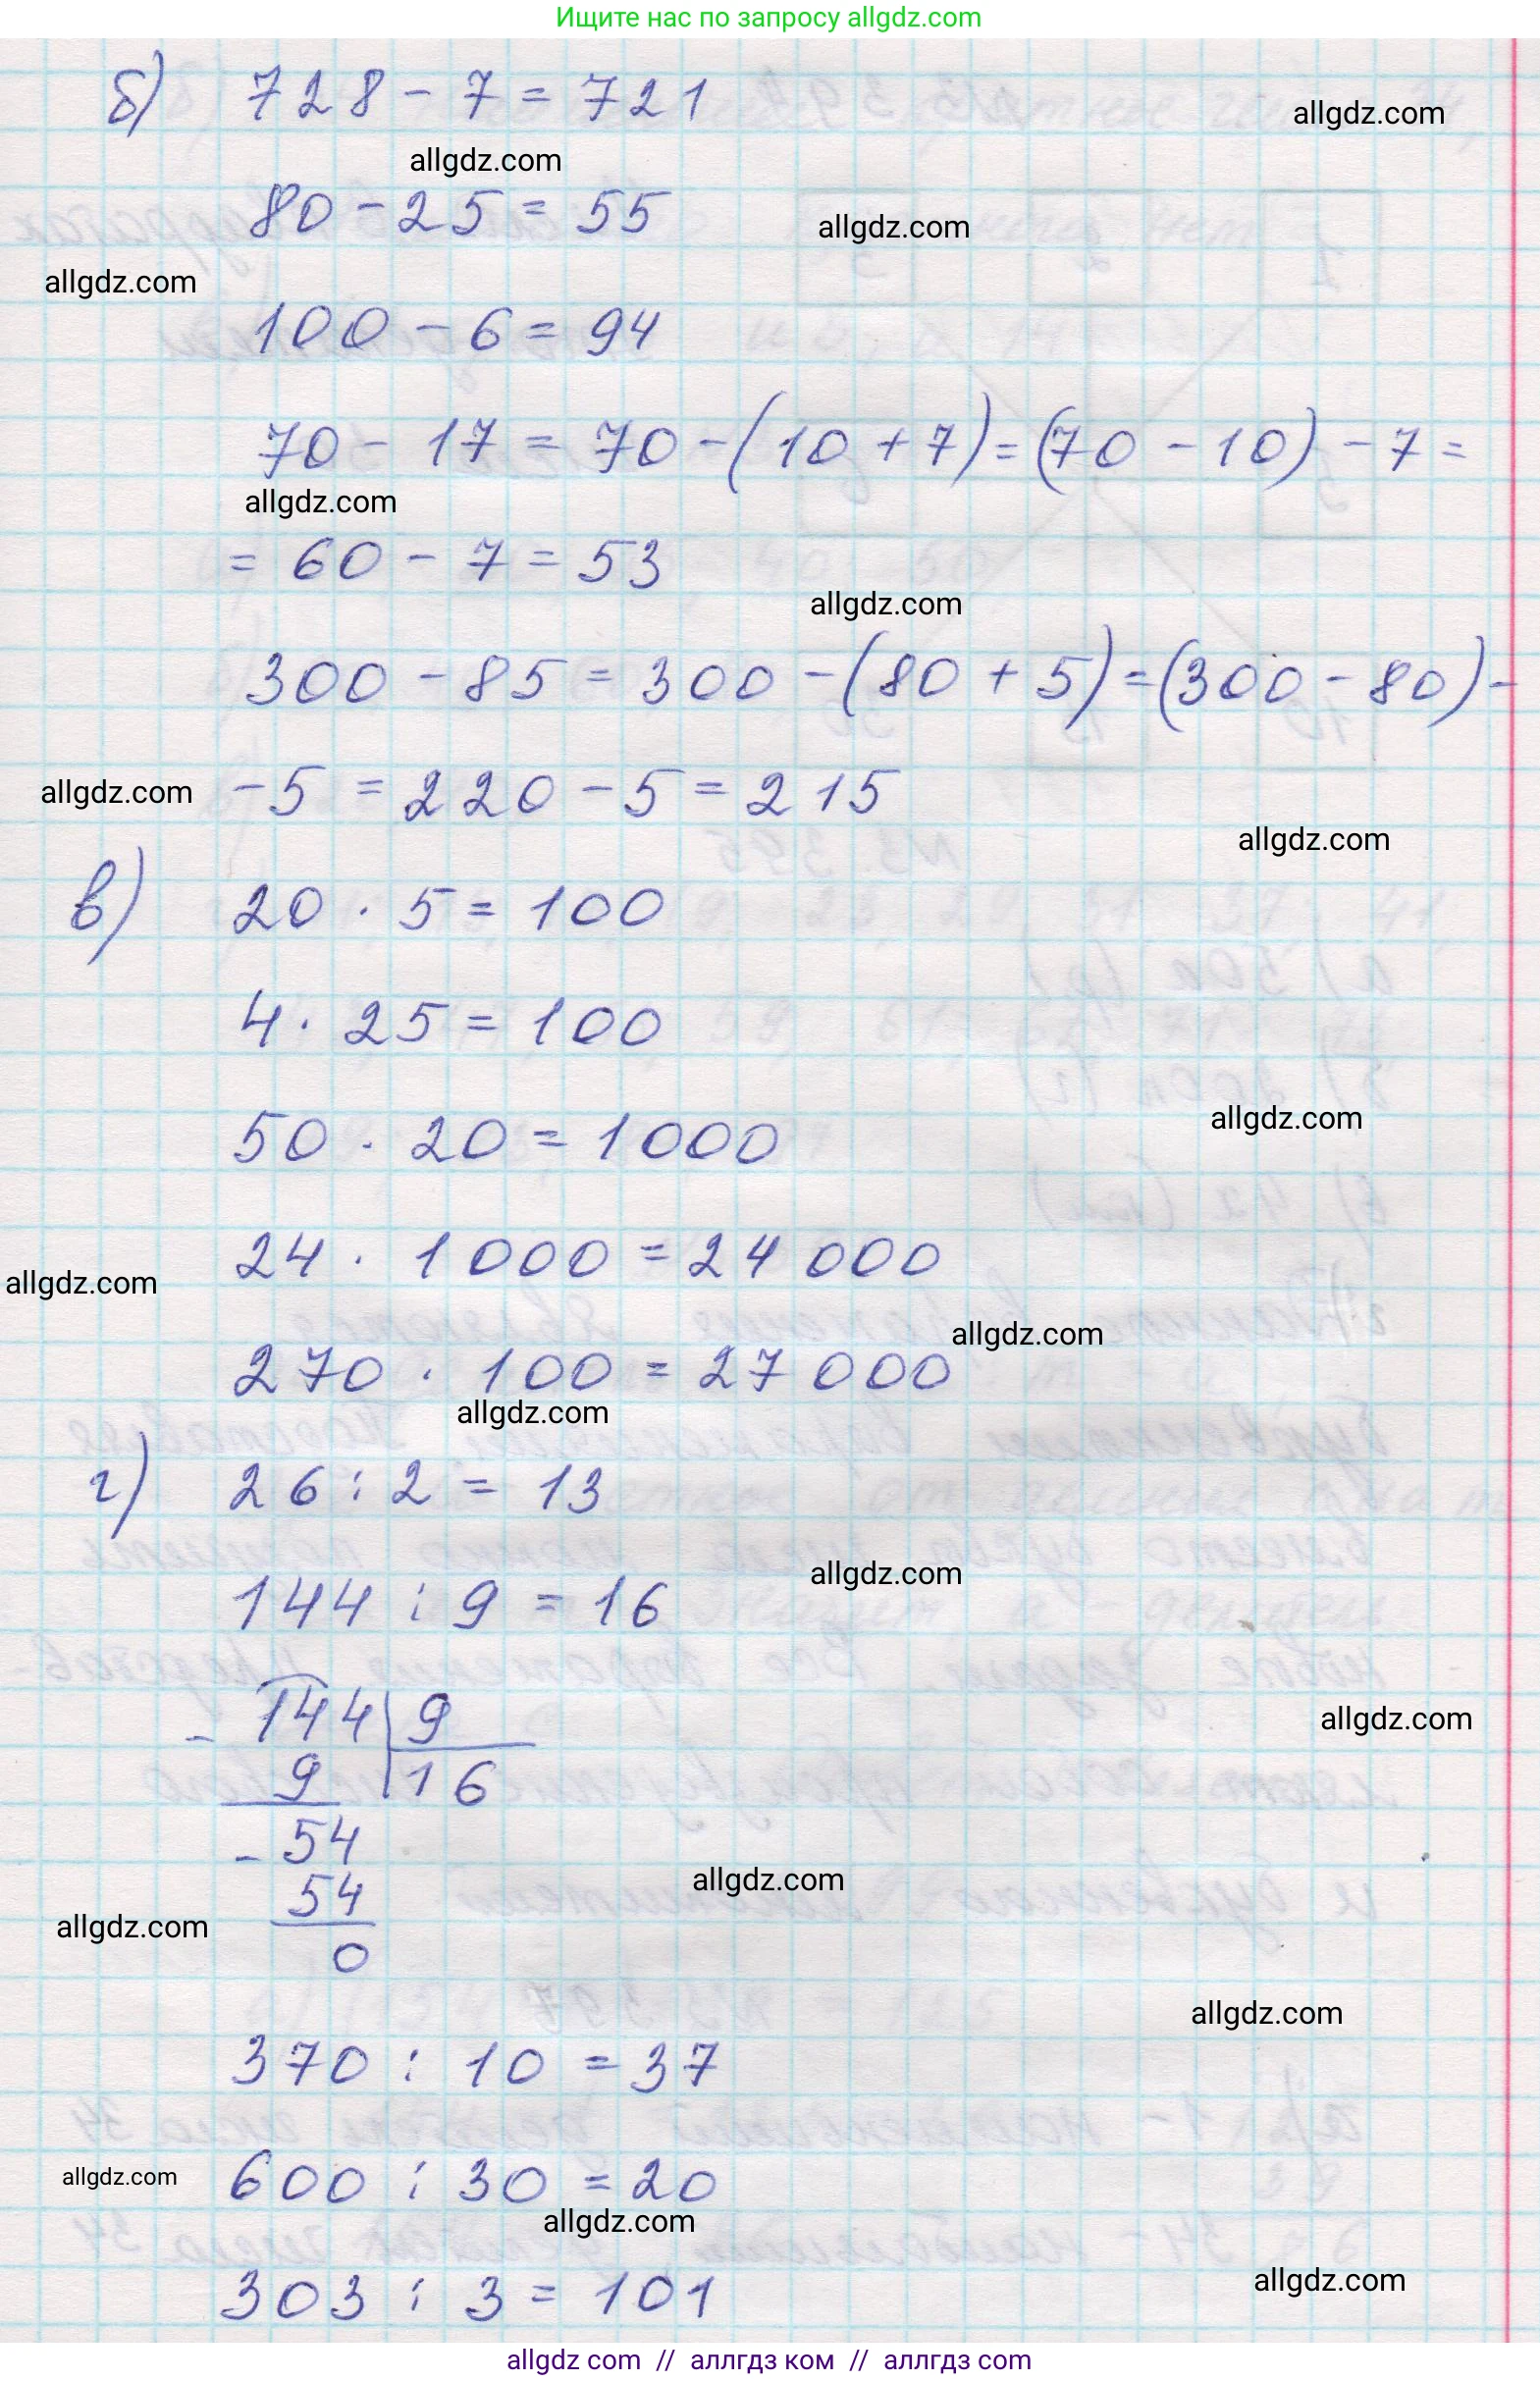 Ищите нас по запросу allgdz.com
б) 728 - 7 = 721
allgdz.com
allgdz.com
80 - 25 = 55
allgdz.com
allgdz.com
100 - 6 = 94
70 - 17 = 70 - (10 + 7) = (70 - 10) - 7 =
allgdz.com
= 60 - 7 = 53
allgdz.com
300 - 85 = 300 - (80 + 5) = (300 - 80) -
allgdz.com
- 5 = 220 - 5 = 215
allgdz.com
в) 20 · 5 = 100
4 · 25 = 100
50 · 20 = 1000
allgdz.com
24 · 1000 = 24 000
allgdz.com
allgdz.com
270 · 100 = 27 000
allgdz.com
г) 26 : 2 = 13
allgdz.com
144 : 9 = 16
- 144 | 9
allgdz.com
9 | 16
- 54
allgdz.com
54
allgdz.com
0
allgdz.com
370 : 10 = 37
allgdz.com
600 : 30 = 20
allgdz.com
allgdz.com
303 : 3 = 101
allgdz com // аллгдз ком // аллгдз com